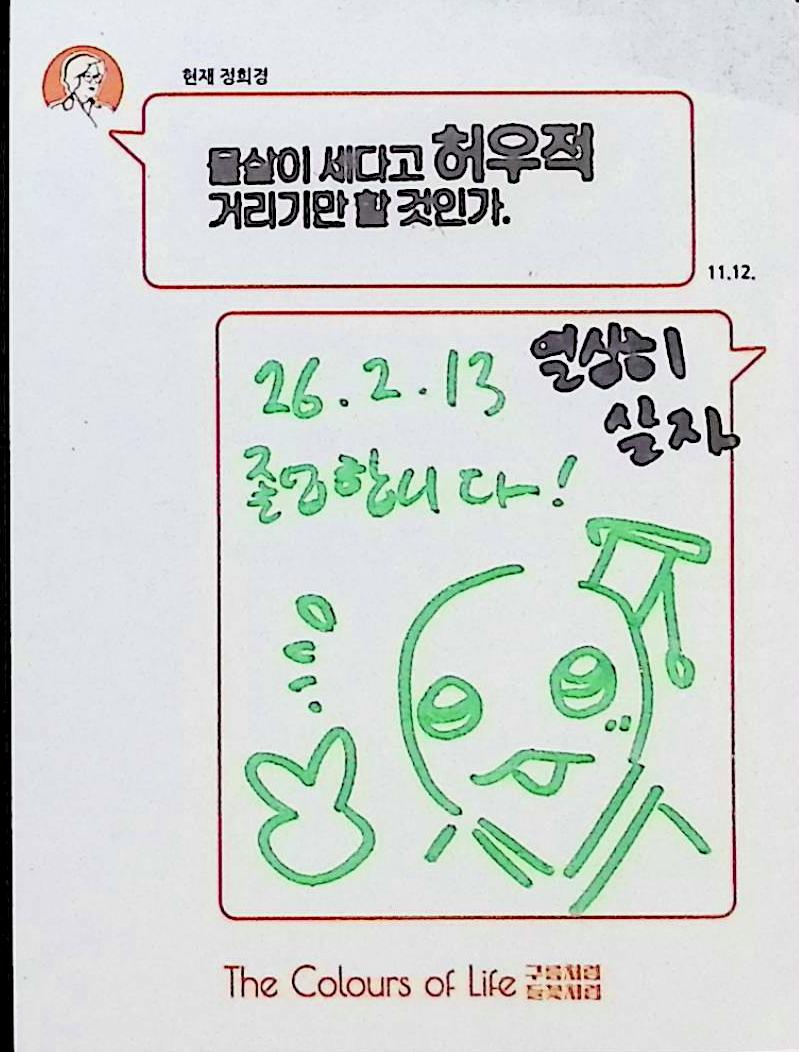 현재 정희경
물살이 세다고 허우적
거리기만 할 것인가.
11.12.
열심히
살자
26.2.13
졸업합니다!
The Colours of Life 구름처럼
들꽃처럼